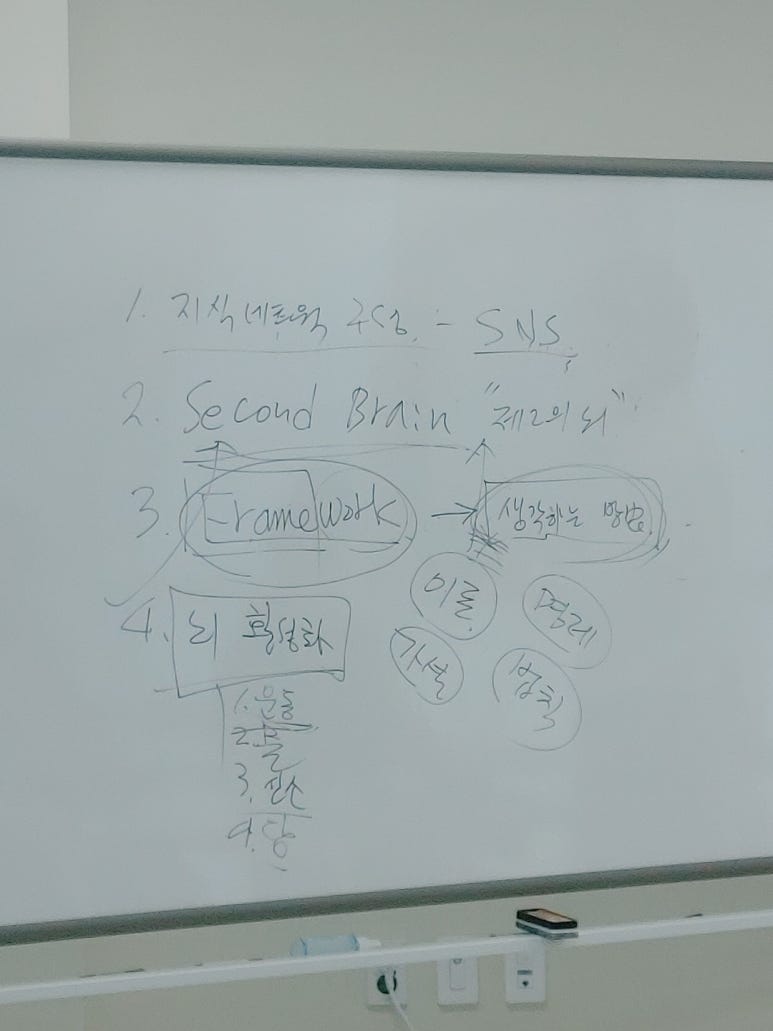 1. 지식네트웍 구성 - SNS
2. Second Brain "제2의 뇌"
3. Framework → 생각하는 방법
이론 명제
가설 법칙
4. 뇌 활성화
1. 운동
2. 물
3. 산소
4. 당